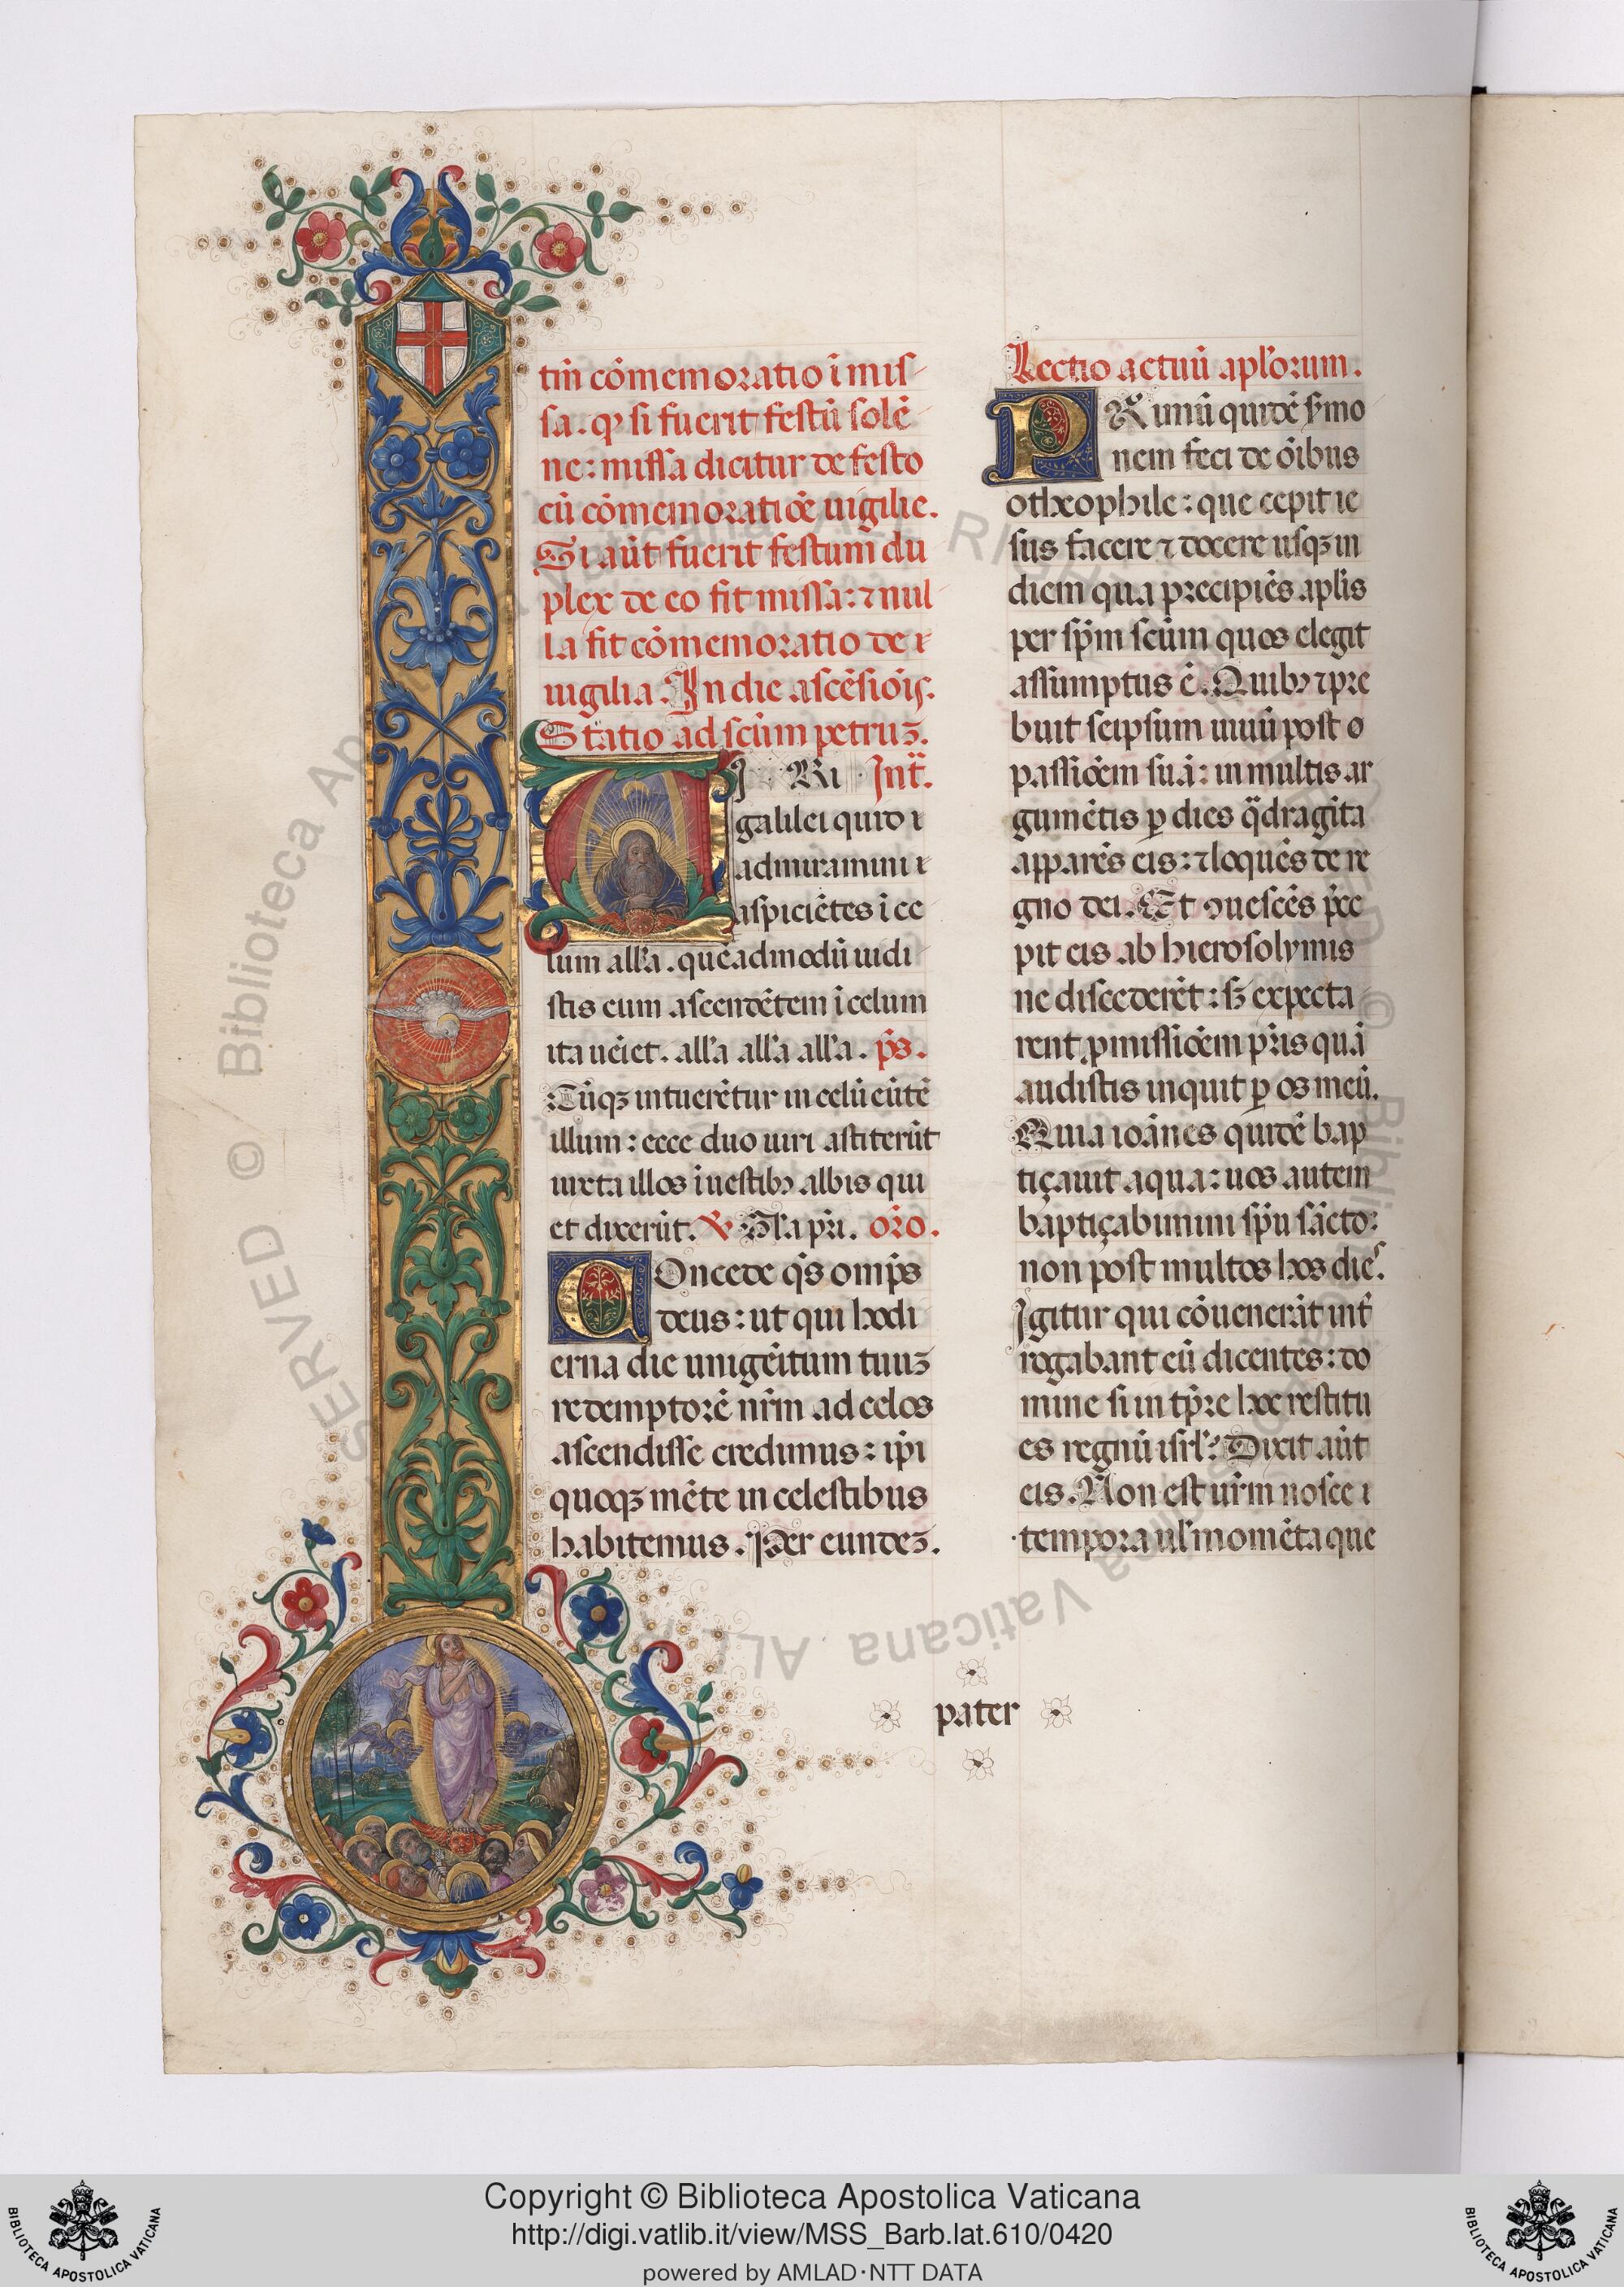 tm̄ cōmemoratio ī mis
sa. qꝫ si fuerit festū solē
ne: missa dicitur de festo
cū cōmemoratiōe uigilie.
Si aūt fuerit festum du
plex de eo fit missa: ⁊ nul
la fit cōmemoratio de
uigilia. In die ascēsiōis.
Statio ad scūm petruꝫ.
UI RI Int̄.
galilei quid
admiramini
aspiciētes ī ce
lum all'a. quēadmodū uidi
stis eum ascendētem ī celum
ita ueīet. all'a all'a all'a. p̄s.
Cūqꝫ intuerētur in celū eūtē
illum: ecce duo uiri astiterūt
iuxta illos ī uestibꝫ albis qui
et dixerūt. ℣ Gl'a pr̄i. oŕo.
COncede q̄s omp̄s
deus: ut qui hodi
erna die unigēitum tuuꝫ
redemptorē nr̄m ad celos
ascendisse credimus: ip̄i
quoqꝫ mēte in celestibus
habitemus. Per eundeꝫ.
Lectio actuū apl'orum.
PRimū quidē s̄mo
nem feci de oībus
o theophile: que cepit ie
sus facere ⁊ docere usqꝫ in
diem qua precipiēs apl'is
per sp̄m scūm quos elegit
assumptus ē. Quibꝫ ⁊ pre
buit seipsum uiuū post
passiōem suā: in multis ar
gumētis ꝑ dies q̄dragīta
apparēs eis: ⁊ loquēs de re
gno dei. Et ꝯuescēs p̄ce
pit eis ab hierosolymis
ne discederēt: sꝫ expecta
rent ꝓmissiōem pr̄is quā
audistis inquit ꝑ os meū.
Quia ioānes quidē bap
tiçauit aqua: uos autem
baptiçabimini sp̄u sācto:
non post multos hos dies.
Igitur qui cōuenerāt int̄
rogabant eū dicentes: do
mine si in tp̄re hoc restitu
es regnū isrl'? Dixit aūt
eis. Non est ur̄m nosce
tempora ul' momēta que
pater
SERVED © Biblioteca Apostolica Vaticana ALL RIGHTS RESERVED © Biblioteca Apostolica Vaticana ALL R
Copyright © Biblioteca Apostolica Vaticana
http://digi.vatlib.it/view/MSS_Barb.lat.610/0420
powered by AMLAD·NTT DATA
BIBLIOTECA APOSTOLICA VATICANA
BIBLIOTECA APOSTOLICA VATICANA